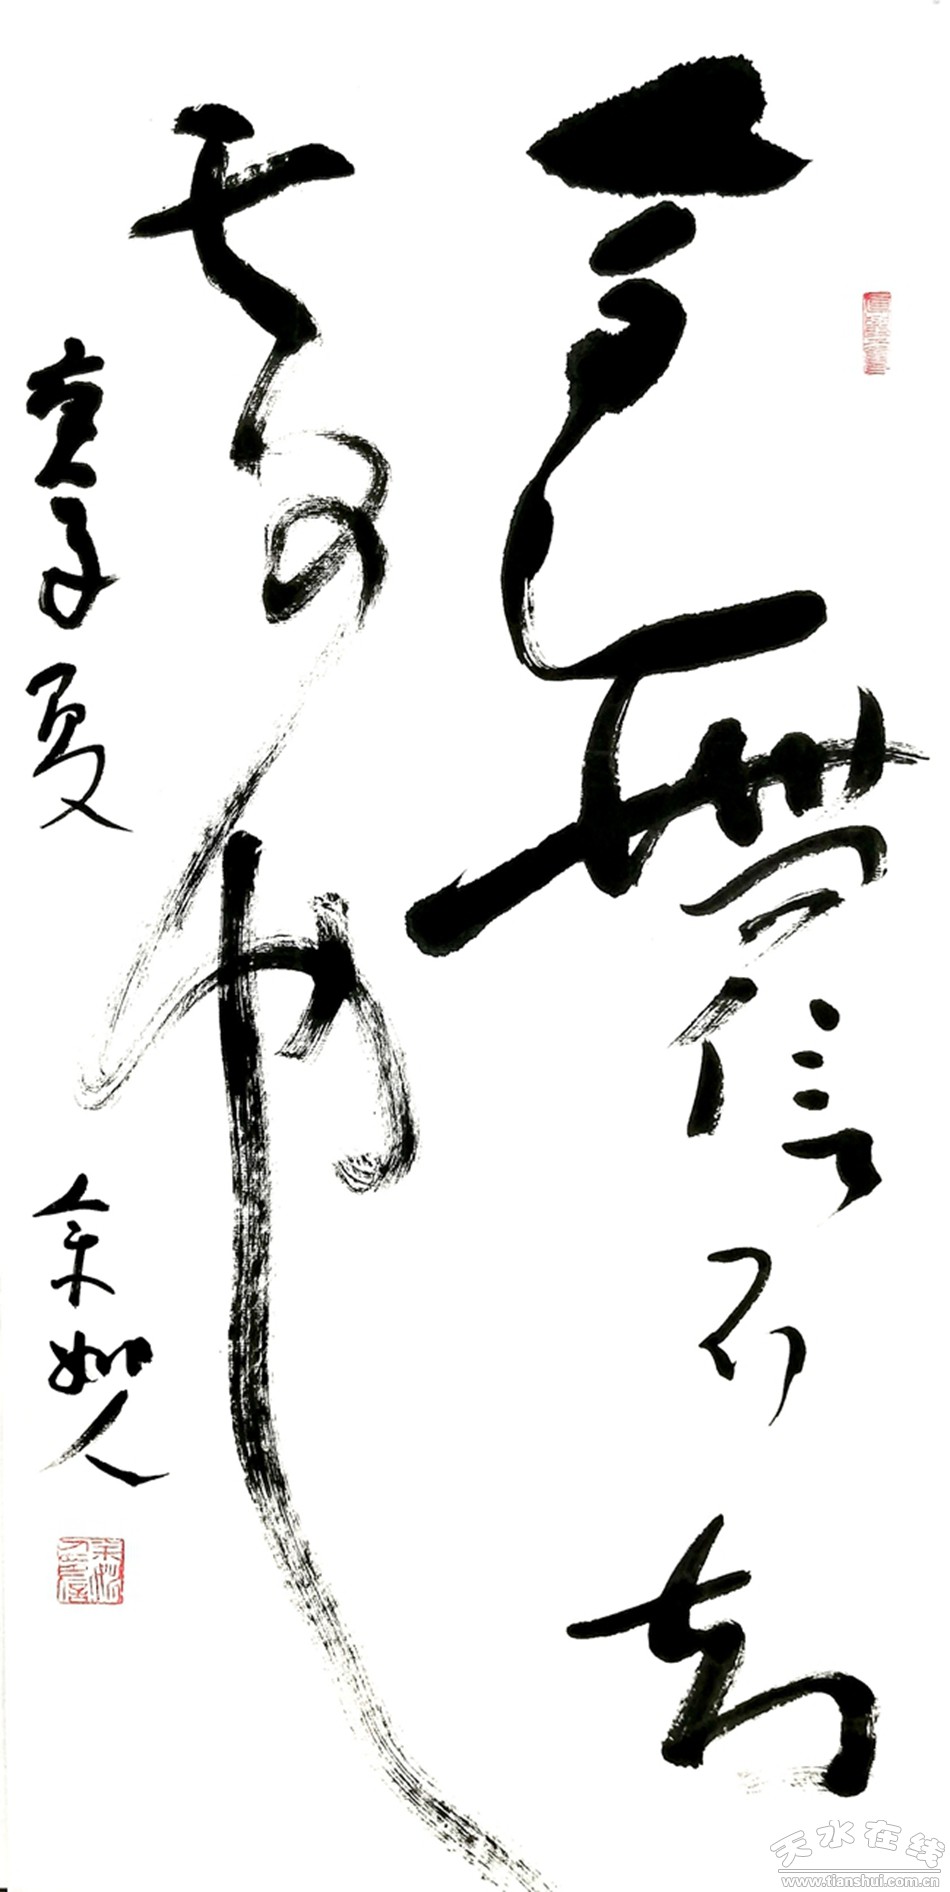 言而無信不知
其可也
庚子夏 余如人
天水在线
www.tianshui.com.cn